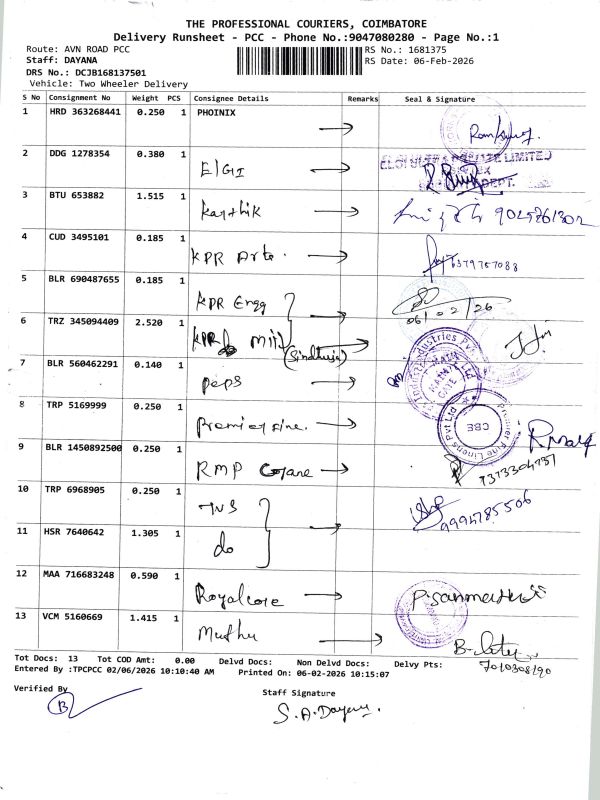 THE PROFESSIONAL COURIERS, COIMBATORE
Delivery Runsheet - PCC - Phone No.:9047080280 - Page No.:1
Route: AVN ROAD PCC
RS No.: 1681375
Staff: DAYANA
RS Date: 06-Feb-2026
DRS No.: DCJB168137501
Vehicle: Two Wheeler Delivery
S No Consignment No Weight PCS Consignee Details Remarks Seal & Signature
1 HRD 363268441 0.250 1 PHOINIX
2 DDG 1278354 0.380 1 ElGI
3 BTU 653882 1.515 1 Karthik
4 CUD 3495101 0.185 1 KPR Arts.
5 BLR 690487655 0.185 1 KPR Engg 06/02/26
6 TRZ 345094409 2.520 1 KPR Mill (Sindhuja)
7 BLR 560462291 0.140 1 peps
8 TRP 5169999 0.250 1 Premier fine. Premier Fine Linens Pvt Ltd CBE
9 BLR 1450892500 0.250 1 RMP
10 TRP 6968905 0.250 1 TVS 9994785506
11 HSR 7640642 1.305 1 do
12 MAA 716683248 0.590 1 Royalcare
13 VCM 5160669 1.415 1 Muthu
Tot Docs: 13 Tot COD Amt: 0.00 Delvd Docs: Non Delvd Docs: Delvy Pts:
Entered By :TPCPCC 02/06/2026 10:10:40 AM Printed On: 06-02-2026 10:15:07
Verified By
Staff Signature
S.A.Dayana.